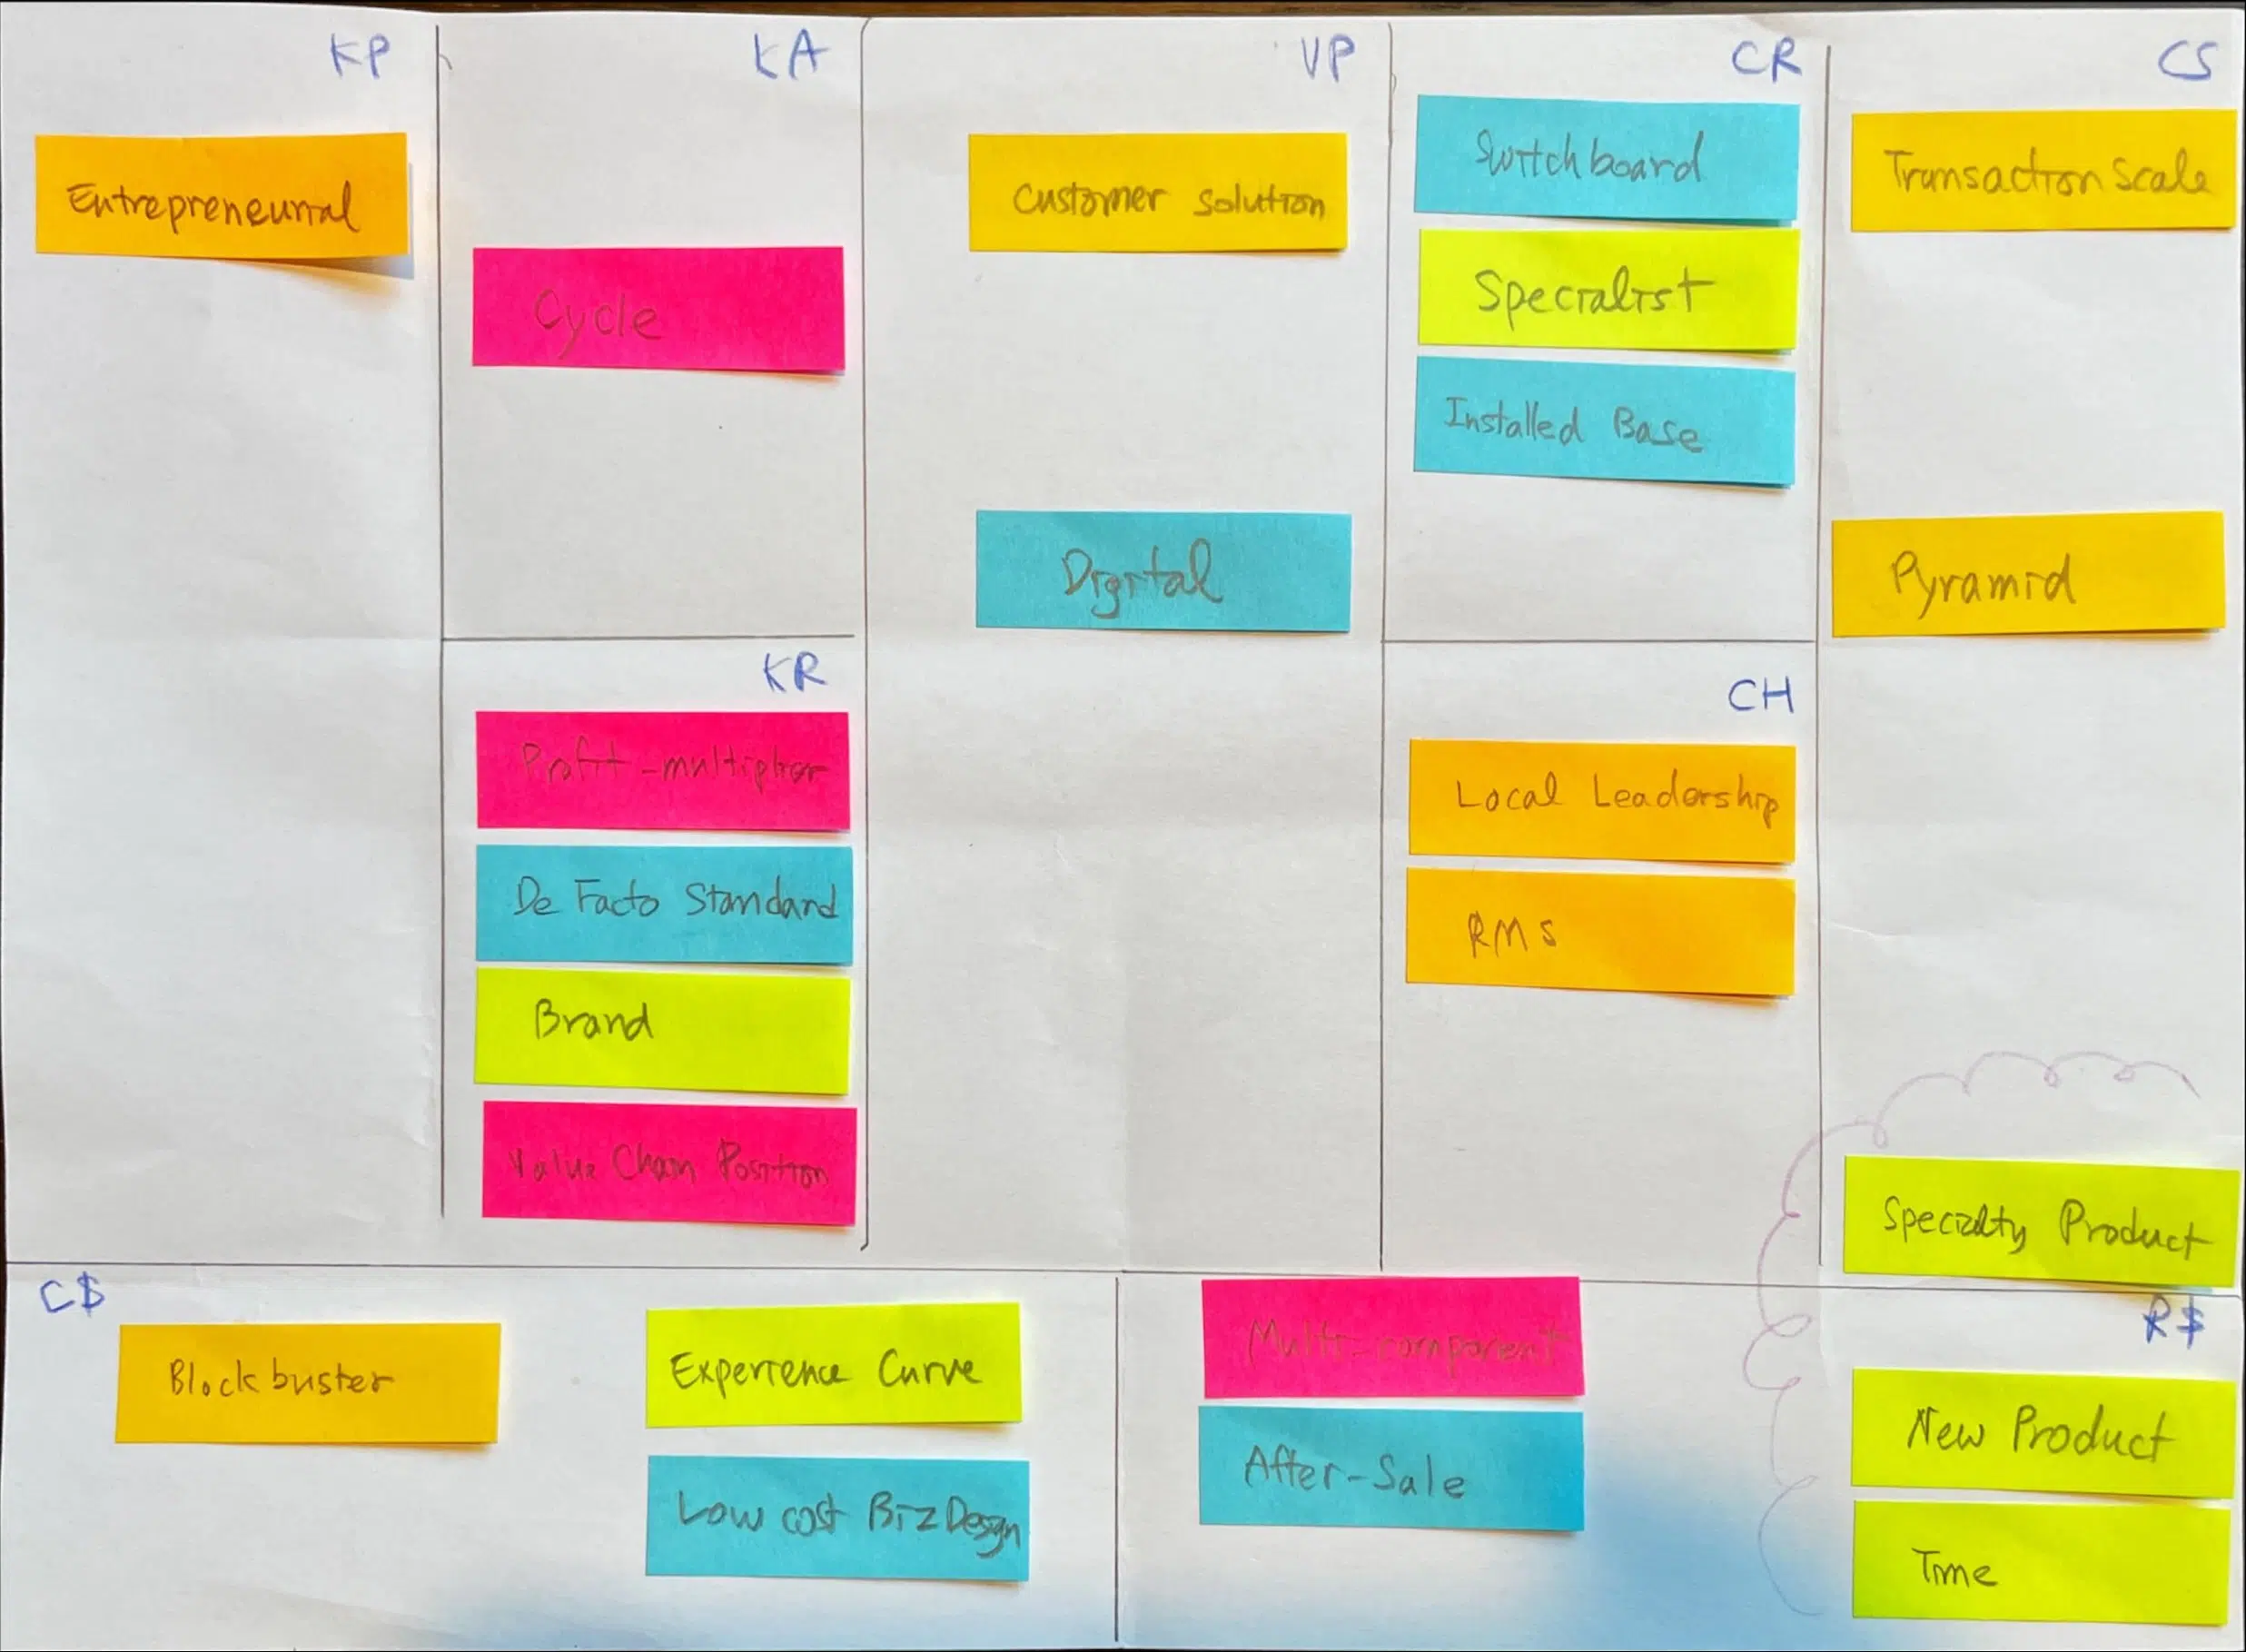 KP
Entrepreneurial
KA
Cycle
KR
Profit-multiplier
De Facto Standard
Brand
Value Chain Position
VP
Customer Solution
Digital
CR
Switchboard
Specialist
Installed Base
CH
Local Leadership
RMS
CS
Transaction Scale
Pyramid
Specialty Product
C$
Blockbuster
Experience Curve
Low cost Biz Design
R$
Multi-component
After-Sale
New Product
Time